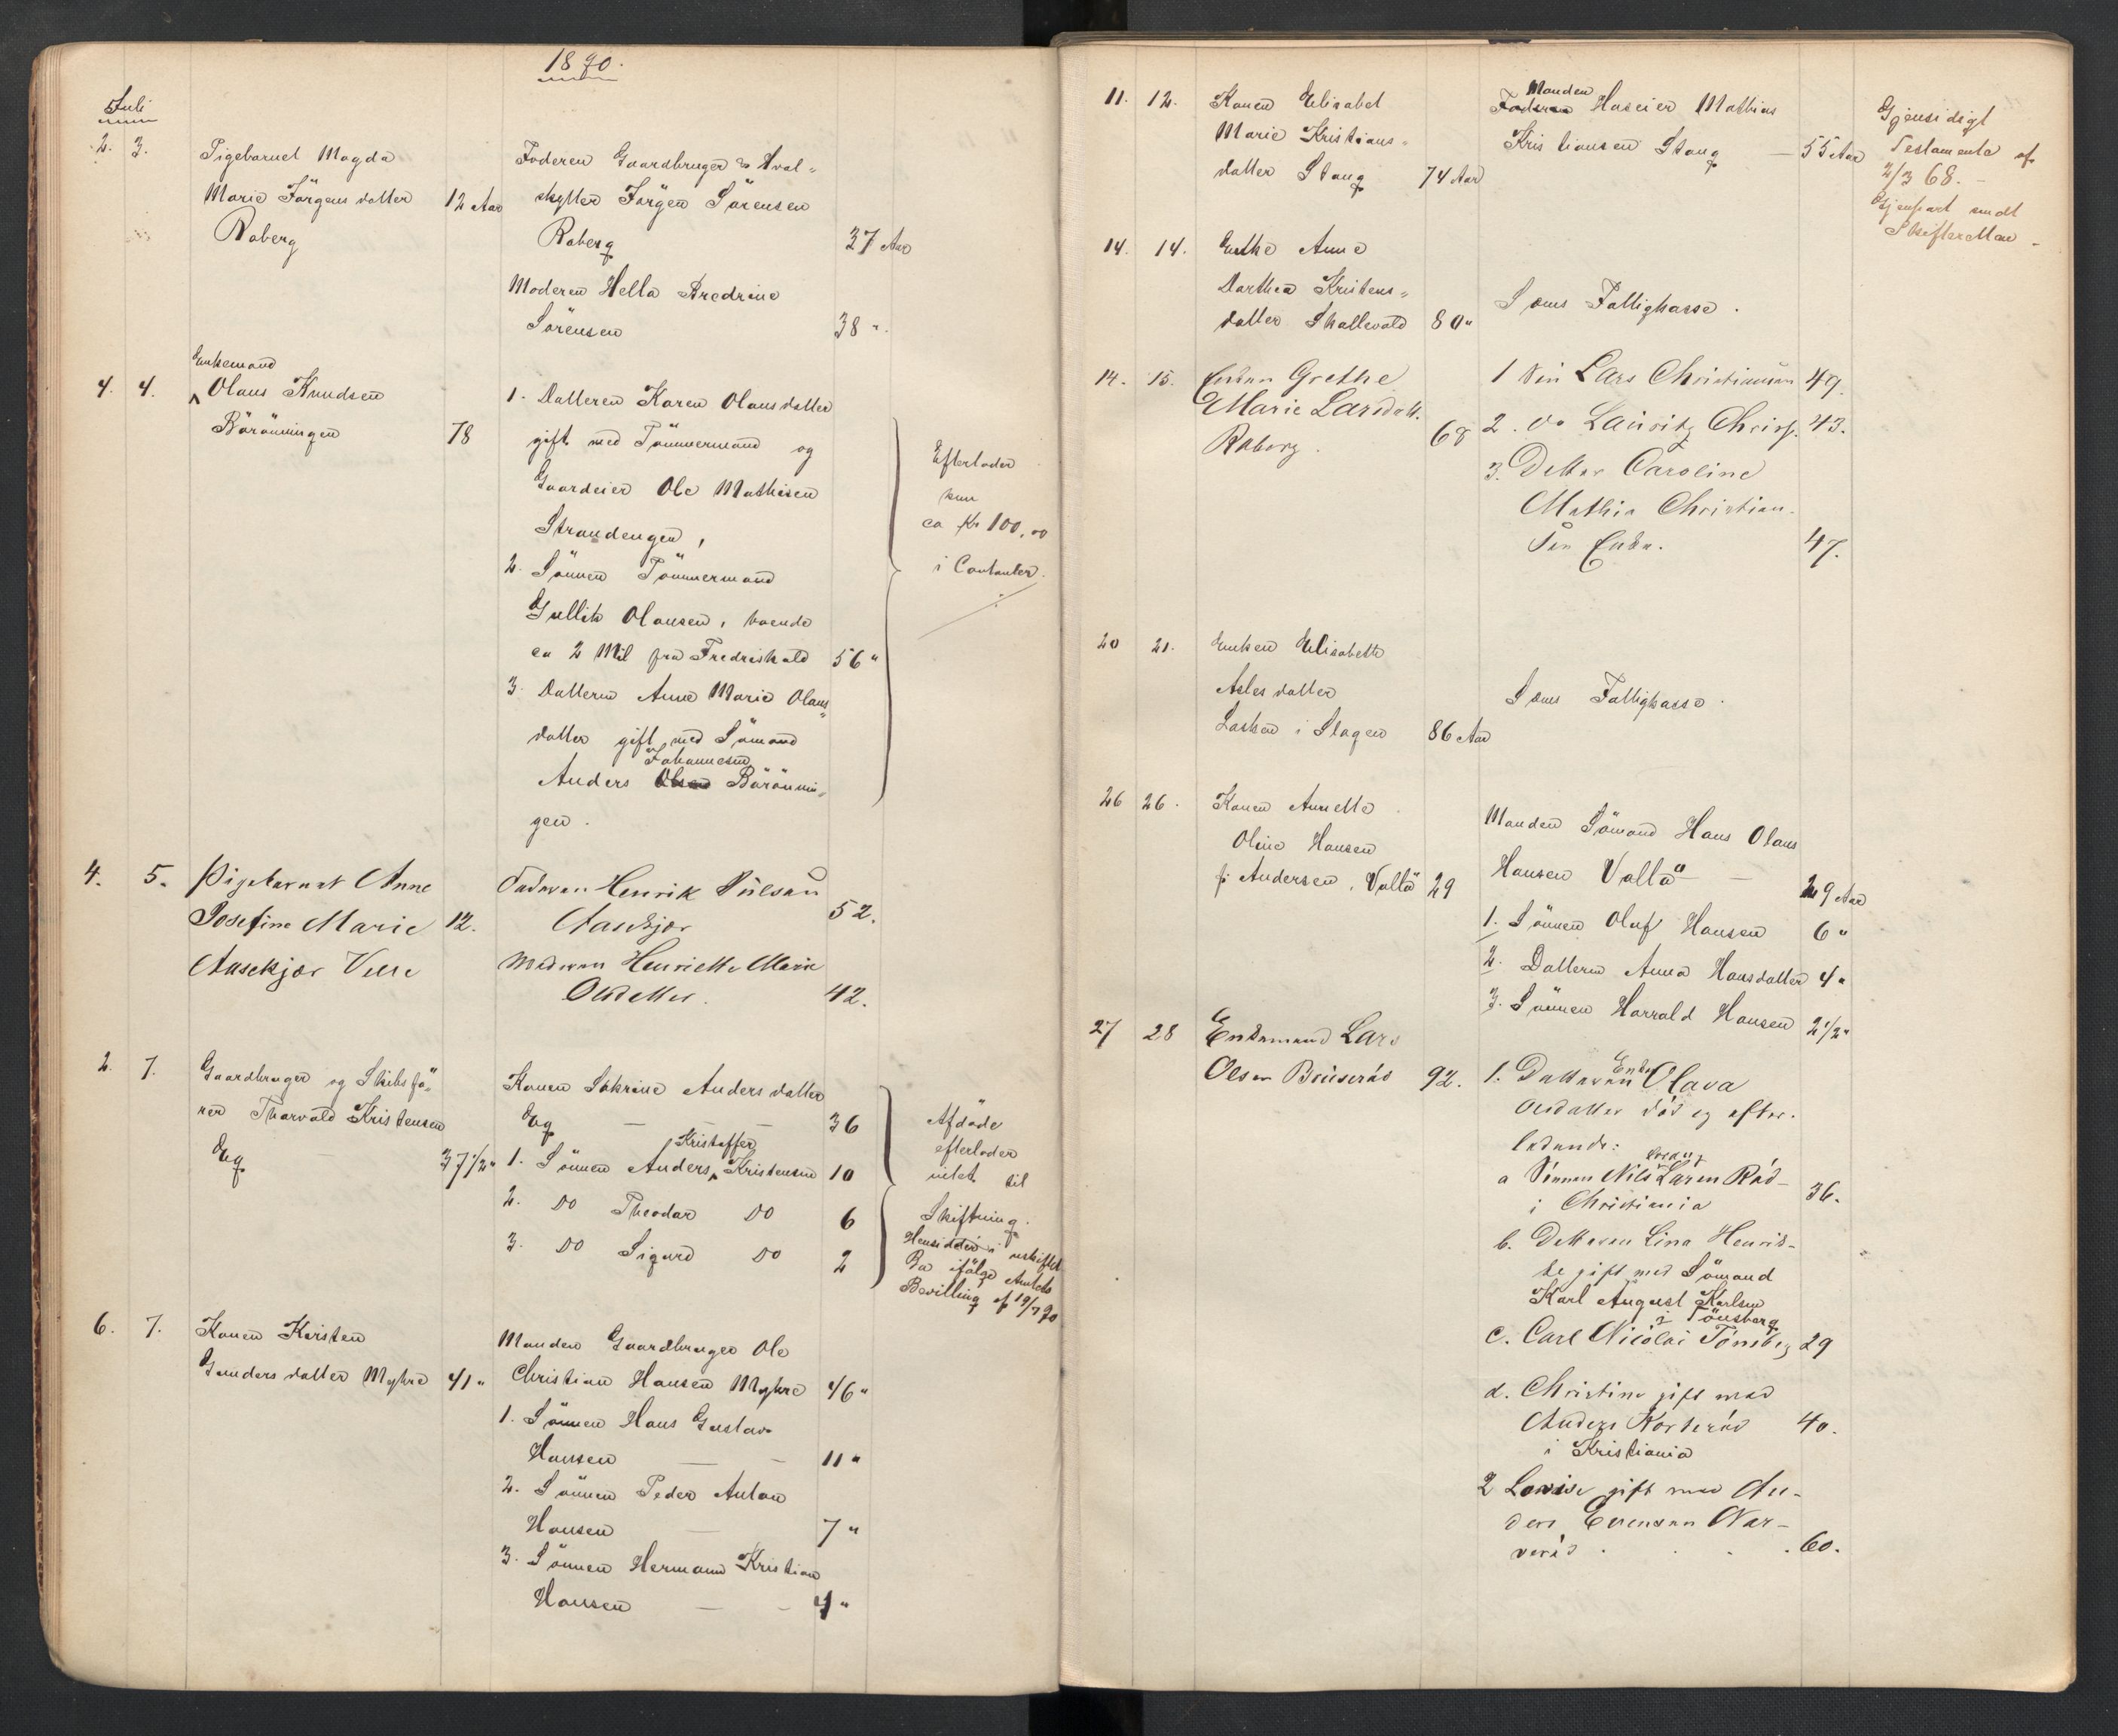 1890.
Juli
2. 3. Pigebarnet Magda
Marie Jörgensdatter 12 Aar
Raberg
Faderen Gaardbruger & Hval-
skytter Jörgen Sörensen
Raberg 37 Aar
Moderen Hella Fredrine
Sörensen 38 "
Enkemand
4. 4. Olaus Knudsen
Bärönningen 78
1. Datteren Karen Olausdatter
gift med Tömmermand og
Gaardeier Ole Mathisen
Strandengen,
2. Sönnen Tömmermand
Gullik Olausen, boende
ca 2 Mil fra Fredrikshald 56 "
3. Datteren Anne Marie Olaus-
datter gift med Sömand
Johannesen
Anders Olsen Bärönnin-
gen.
Efterlader
kun
ca Kr 100,00
i Contanter.
4. 5. Pigebarnet Anne
Josefine Marie 12.
Aasekjær Velle
Faderen Henrik Nilsen
Aasekjær 52.
Moderen Henriette Marie
Olsdatter. 42.
2. 7. Gaardbruger og Skibsfö-
rer Thorvald Kristensen
Eeg 37 1/2 "
Konen Sekrine Andersdatter
Eeg — — 36
Kristoffer
1. Sönnen Anders Kristensen 10
2. Do Theodor Do 6
3. Do Sigurd Do 2
Afdöde
efterlader
intet til
Skiftning.
Hensidder i uskiftet
Bo ifölge Amtets
Bevilling af 19/7 90
6. 7. Konen Kirsten
Gundersdatter Myhre 41 "
Manden Gaardbruger Ole
Christian Hansen Myhre 46 "
1. Sönnen Hans Gustav
Hansen — - 11 "
2. Sönnen Peder Anton
Hansen — 7 "
3. Sönnen Hermann Kristian
Hansen — - 4 "
11. 12. Konen Elisabet
Marie Kristians-
datter Stang 74 Aar
Manden
Faderen Huseier Mathias
Kristiansen Stang — 55 Aar
Gjensidigt
Testamente af
2/3 68. -
Gjenpart sendt
Skifteretten -
14. 14. Enke Anne
Dorthea Kristens-
datter Skallevold 80 "
Sems Fattigkasse.
14. 15. Enken Grethe
Marie Larsdatt.
Raberg. 68
1 Sön Lars Christiansen 49.
2. do Lauritz Christ. 43.
3. Datter Caroline
Mathia Christian-
sen Enke. 47.
20 21. Enken Elisabeth
Aslesdatter
Lasken i Slagen 86 Aar
Sems Fattigkasse.
26 26. Konen Annette
Oline Hansen
f. Andersen, Vallö 29
Manden Sömand Hans Olaus
Hansen Vallö — 29 Aar
1. Sönnen Oluf Hansen 6 "
2. Datteren Anna Hansdatter 4 "
3. Sönnen Harrald Hansen 2 1/2 "
27 28 Enkemand Lars
Olsen Bruseröd 92.
Enke
1. Datteren Olava
Olsdatter död og efter-
ladende:
a Sönnen Nils Laren Röd
i Christiania 36.
b. Datteren Lina Henrik-
ke gift med Sömand
Karl August Karlsen
Tönsberg
c. Carl Nicolai Tönsberg 29
d. Christine gift med
Anders Korteröd 40.
i Kristiania
2 Lovise gift med An-
ders Evensen Nar-
veröd . . . 60.